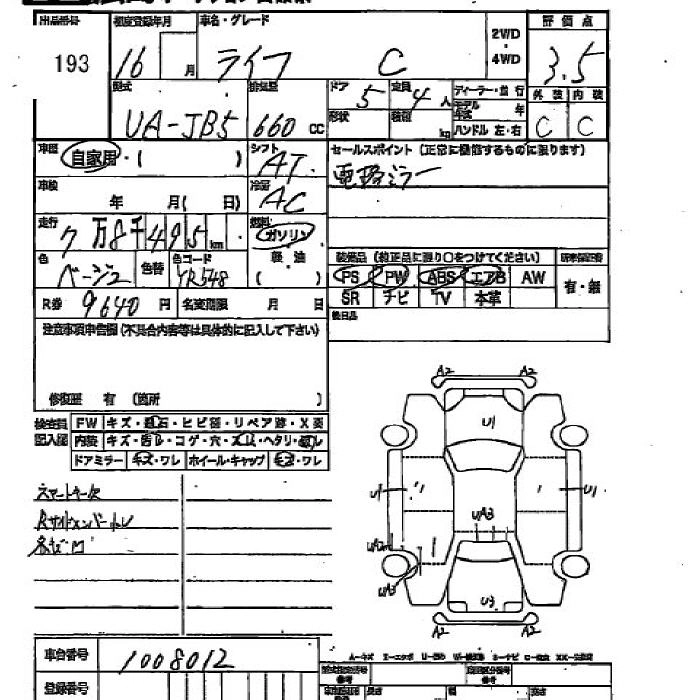 出品番号 初度登録年月 車名・グレード 2WD・4WD 評価点
193 16 月 ライフ C 3.5
型式 排気量 ドア 定員 ディーラー・並行 外装 内装
UA-JB5 660 CC 5 4人 モデル年式 年 C C
形状 積載 kg ハンドル 左・右
車歴 自家用・( ) シフト AT セールスポイント(正常に機能するものに限ります)
車検 年 月( 日) 冷房 AC 電格ミラー
走行 7万8千495km 燃料 ガソリン
軽油
色 ベージュ 色替 色コード YR548 ( )
装備品(純正品に限り○をつけてください)
PS PW ABS エアB AW 有・無
SR ナビ TV 本革
R券 9640円 名変期限 月 日 後日品
注意事項申告欄(不具合内容等は具体的に記入して下さい)
修復歴 有 (箇所 )
検査員記入欄 FW キズ・飛石・ヒビ・リペア跡・X要
内装 キズ・汚レ・コゲ・穴・スレ・ヘタリ
ドアミラー キズ・ワレ ホイール・キャップ キズ・ワレ
スマートキー欠
A2 A2
U1
U1 U1
UA3
U3
A2 A2
車台番号 1008012
登録番号